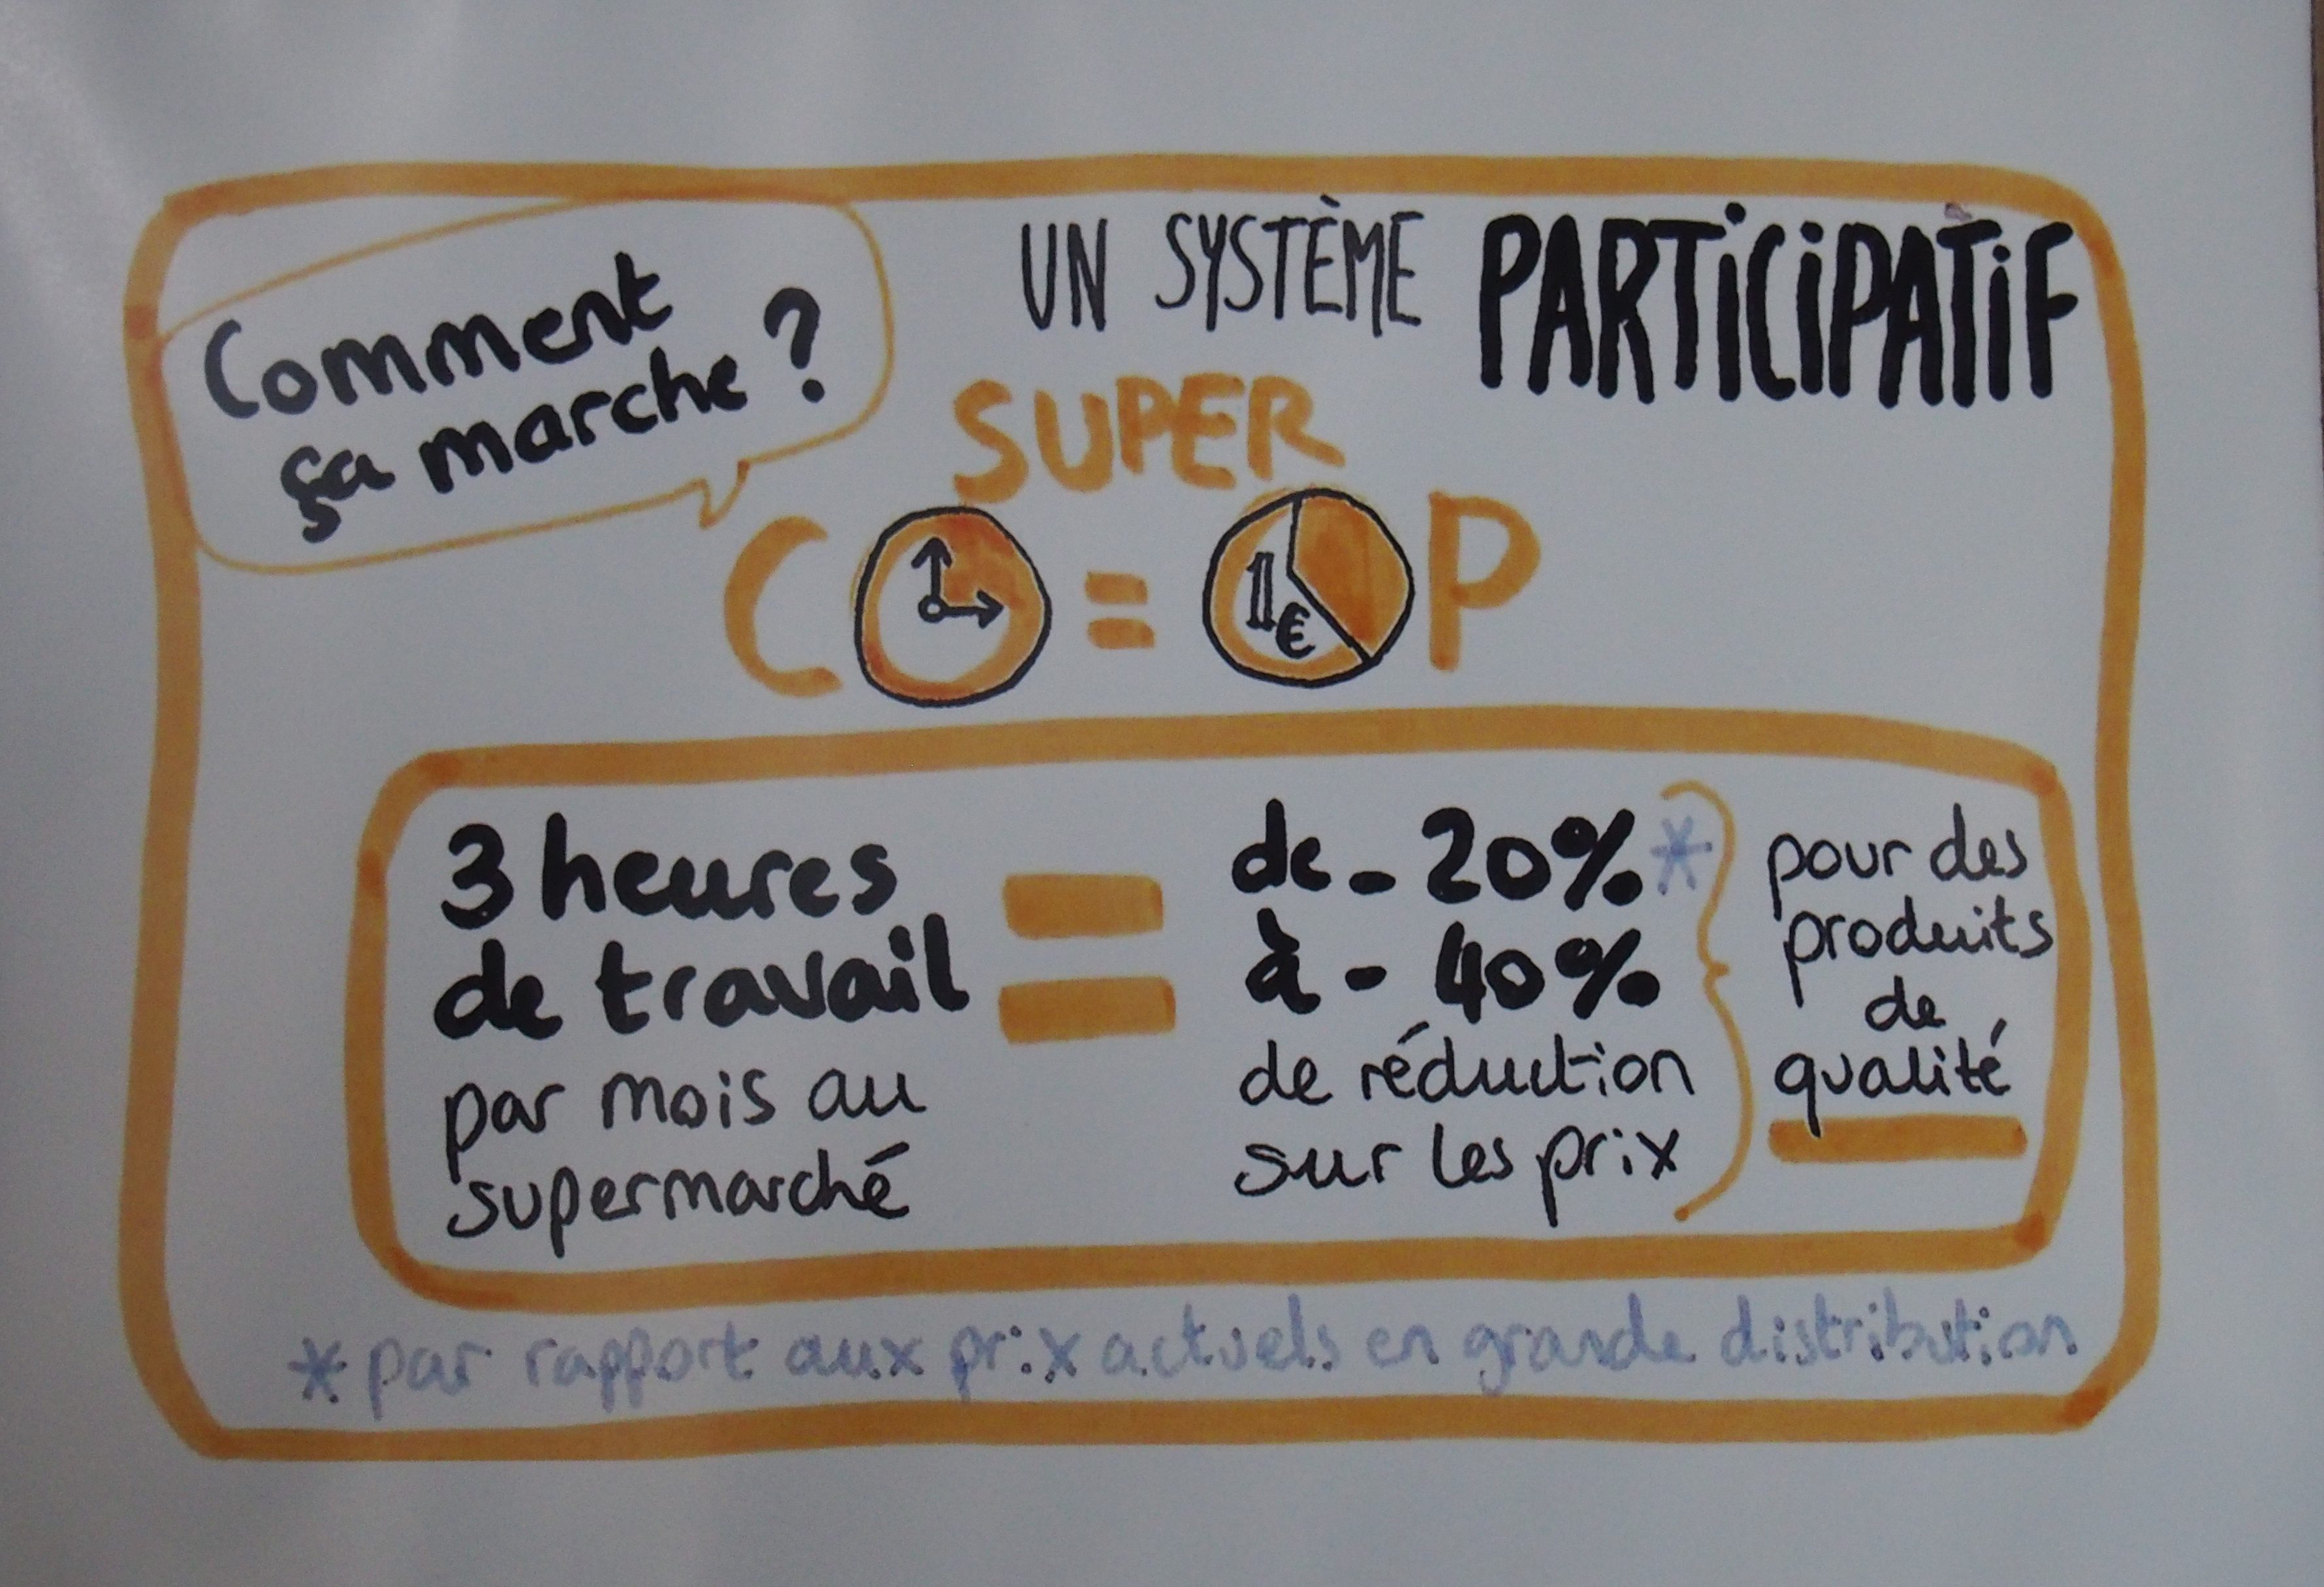 Comment
ça marche ?
UN SYSTÈME PARTiCiPATiF
SUPER
CO=OP
1€
3 heures
de travail
par mois au
supermarché
=
de - 20% *
à - 40%
de réduction
sur les prix
pour des
produits
de
qualité
* par rapport aux prix actuels en grande distribution